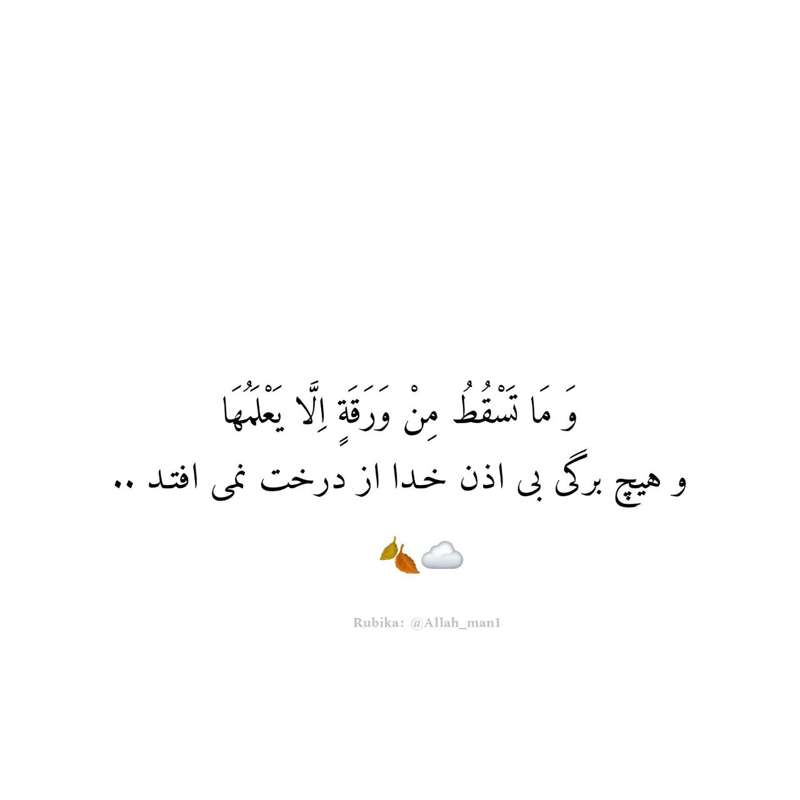 وَ مَا تَسْقُطُ مِنْ وَرَقَةٍ اِلَّا يَعْلَمُهَا
و هیچ برگی بی اذن خدا از درخت نمی افتد ..
🍂☁️
Rubika: @Allah_man1